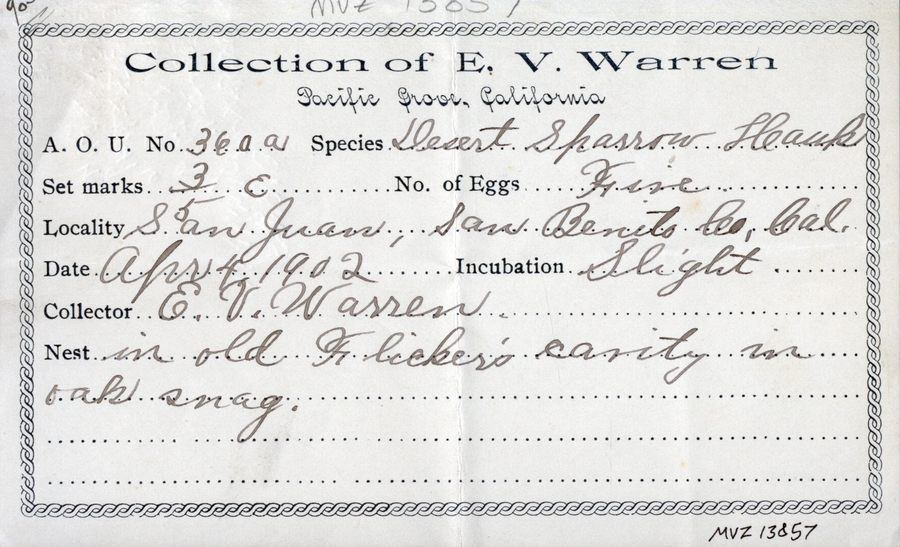 MVZ 13857
Collection of E. V. Warren
Pacific Grove, California
A. O. U. No. 360a Species Desert Sparrow Hawk
Set marks 3/5 C No. of Eggs Five
Locality San Juan, San Benito Co, Cal.
Date Apr 4, 1902 Incubation Slight
Collector E. V. Warren
Nest in old Flicker's cavity in
oak snag.
MVZ 13857